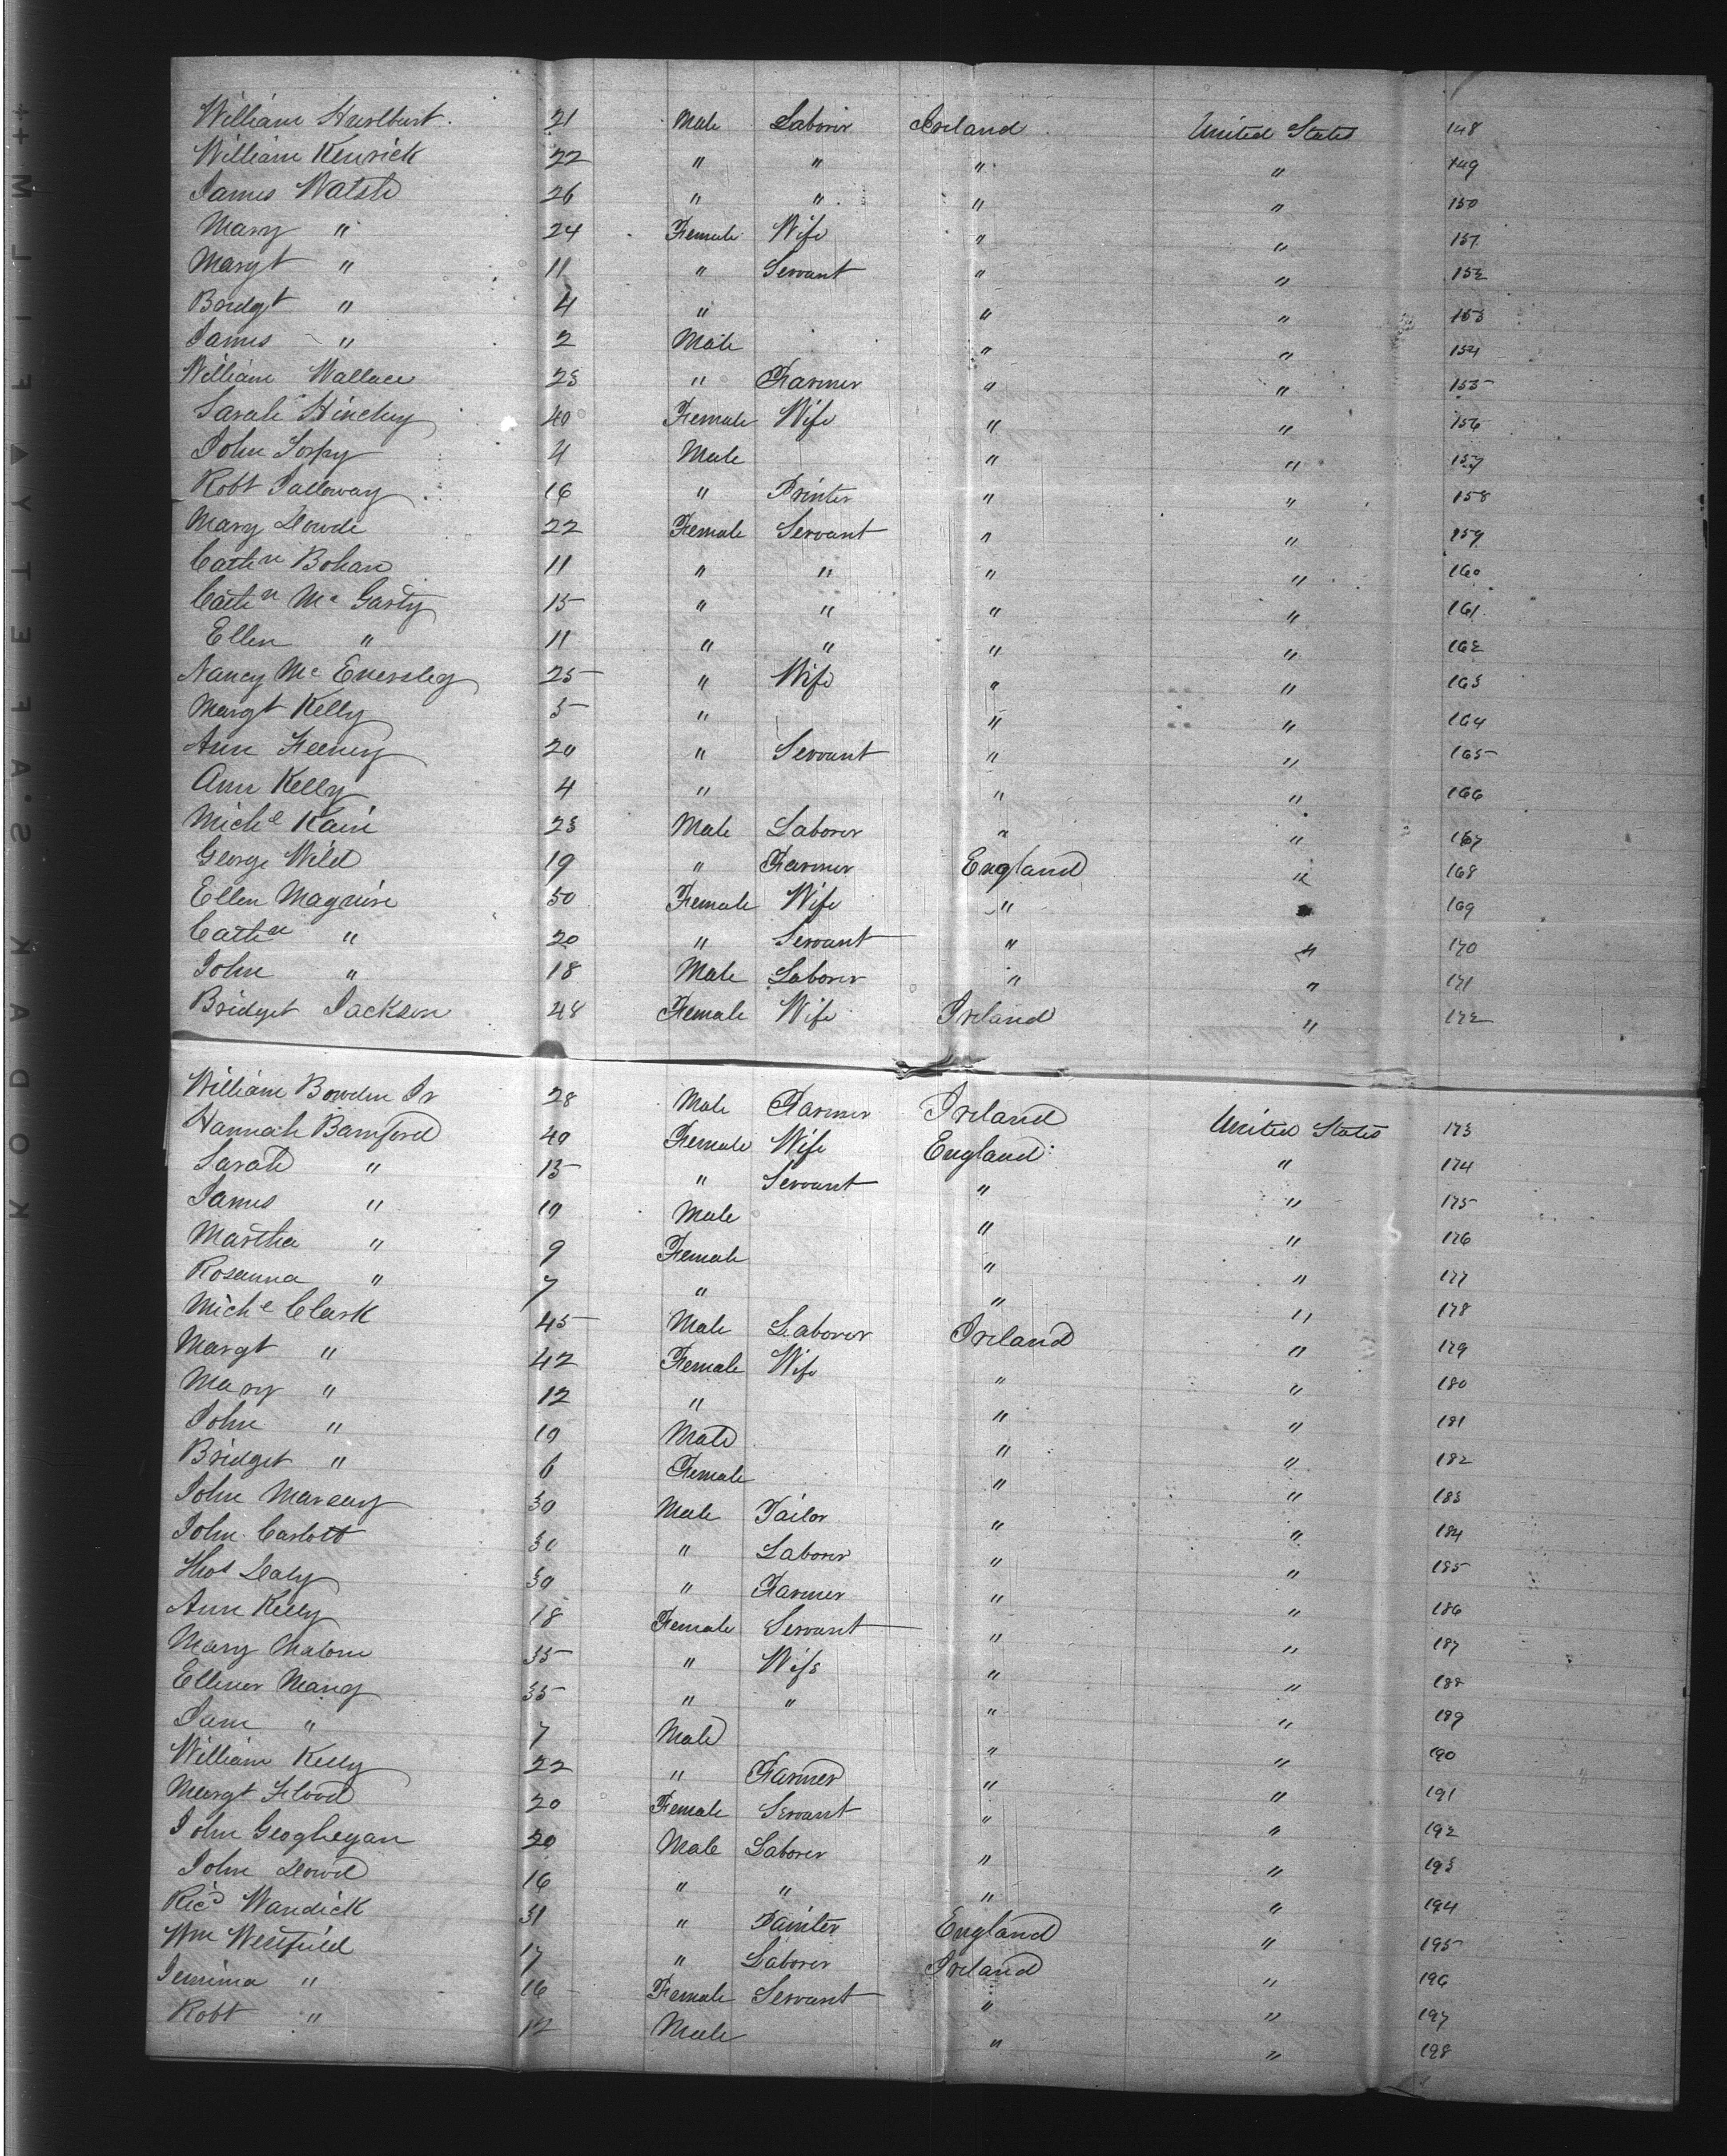 William Hurlburt. 21 Male Laborer Ireland United States 148
William Kenrick 22 " " " " 149
James Walsh 26 " " " " 150
Mary " 24 Female Wife " " 151
Margt " 11 " Servant " " 152
Bridgt " 4 " " " 153
James " 2 Male " " 154
William Wallace 23 " Farmer " " 155
Sarah Hinchy 40 Female Wife " " 156
John Torpy 4 Male " " 157
Robt Talloway 16 " Printer " " 158
Mary Dowde 22 Female Servant " " 159
Cathn Bohan 11 " " " " 160
Cathn Mc Garty 15 " " " " 161
Ellen " 11 " " " " 162
Nancy Mc Eversley 25 " Wife " " 163
Margt Kelly 5 " " " 164
Ann Feeney 20 " Servant " " 165
Ann Kelly 4 " " " 166
Michl Kain 23 Male Laborer " " 167
George Wild 19 " Farmer England " 168
Ellen Maguire 50 Female Wife " " 169
Cathn " 20 " Servant " " 170
John " 18 Male Laborer " " 171
Bridget Jackson 48 Female Wife Ireland " 172
William Bowden Jr 28 Male Farmer Ireland United States 173
Hannah Bamford 40 Female Wife England " 174
Sarah " 15 " Servant " " 175
James " 10 Male " " 176
Martha " 9 Female " " 177
Rosanna " 7 " " " 178
Michl Clark 45 Male Laborer Ireland " 179
Margt " 42 Female Wife " " 180
Mary " 12 " " " 181
John " 10 Male " " 182
Bridget " 6 Female " " 183
John 30 Male Tailor " " 184
John Carlott 30 " Laborer " " 185
Thos Daly 30 " Farmer " " 186
Ann Kelly 18 Female Servant " " 187
Mary Malone 35 " Wife " " 188
Ellenor Mang 35 " " " " 189
Sam " 7 Male " " 190
William Kelly 22 " Farmer " " 191
Margt Flood 20 Female Servant " " 192
John Geoghegan 20 Male Laborer " " 193
John Dowd 16 " " " " 194
Ricd Wandick 31 " Painter England " 195
Wm Westfield 17 " Laborer Ireland " 196
Jemima " 16 Female Servant " " 197
Robt " 12 Male " " 198
KODAK·SAFETY▲FILM